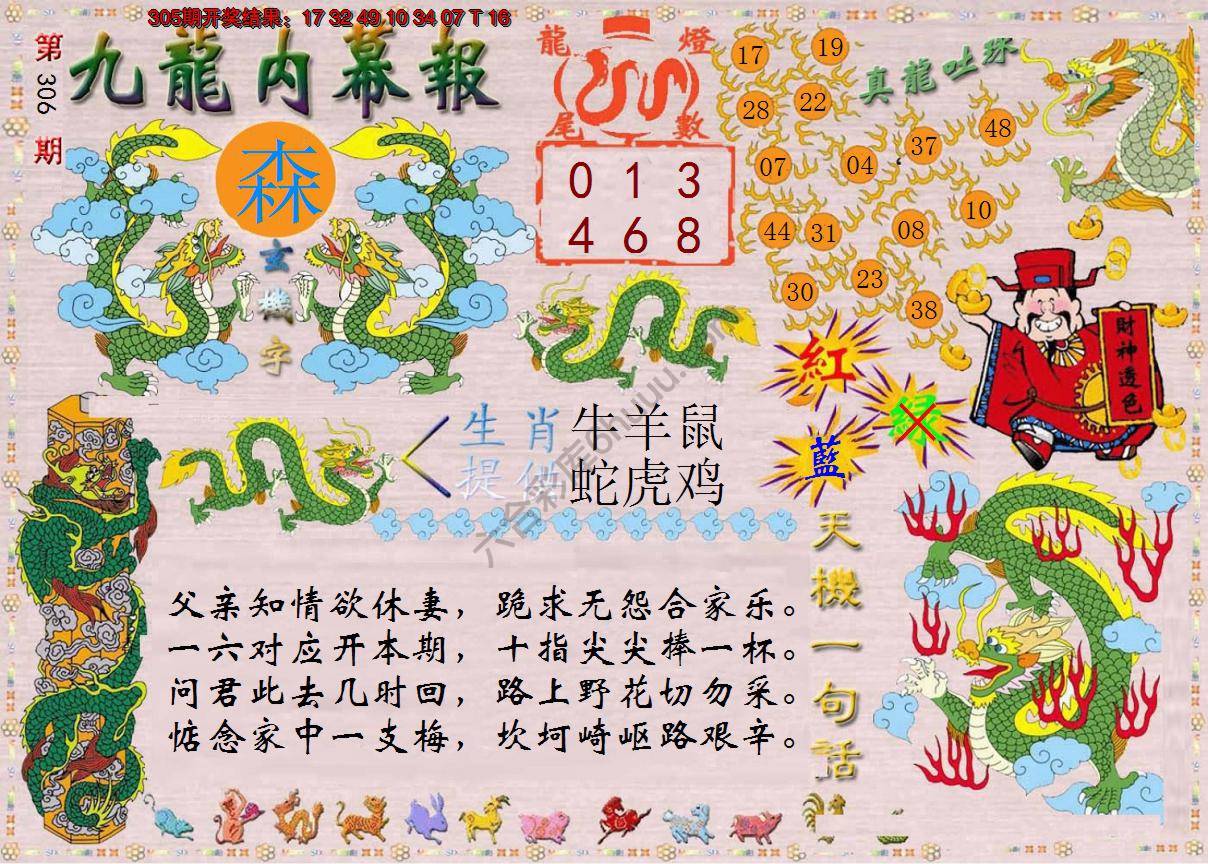 305期开奖结果：17 32 49 10 34 07 T 16
第306期
九龍内幕報
森
玄機字
龍燈
尾數
0 1 3
4 6 8
真龍吐珠
17 19
28 22
07 04 37 48
44 31 08 10
30 23 38
財神透色
紅
绿
藍
生肖 牛羊鼠
提供 蛇虎鸡
天機一句话
父亲知情欲休妻，跪求无怨合家乐。
一六对应开本期，十指尖尖捧一杯。
问君此去几时回，路上野花切勿采。
惦念家中一支梅，坎坷崎岖路艰辛。